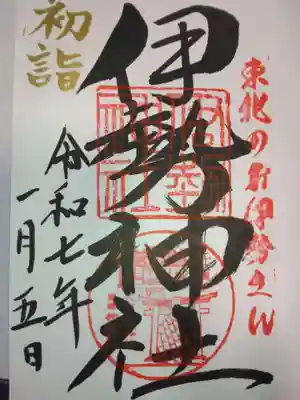 東北のお伊勢さん
伊勢神社
初詣
令和七年
一月五日